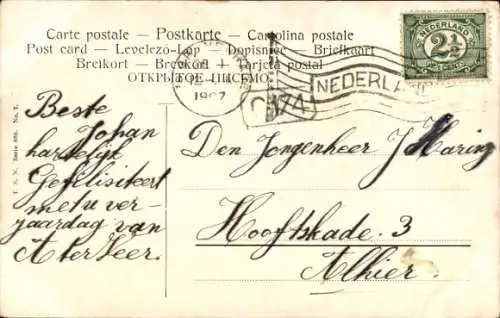 Carte postale — Postkarte — Cartolina postale
Post card — Levelező-Lap — Dopisnice — Briefkaart
Breikort — Brevkort — Tarjeta postal
ОТКРЫТОЕ ПИСЬМО
NEDERLAND
2½
CENT
1907
NEDERLAND
174
Beste
Johan
hartelijk
Gefelisiteert
met u ver-
jaardag van
A ter Veer.
Den Jongenheer J Haring
Hooftskade. 3
Alhier.